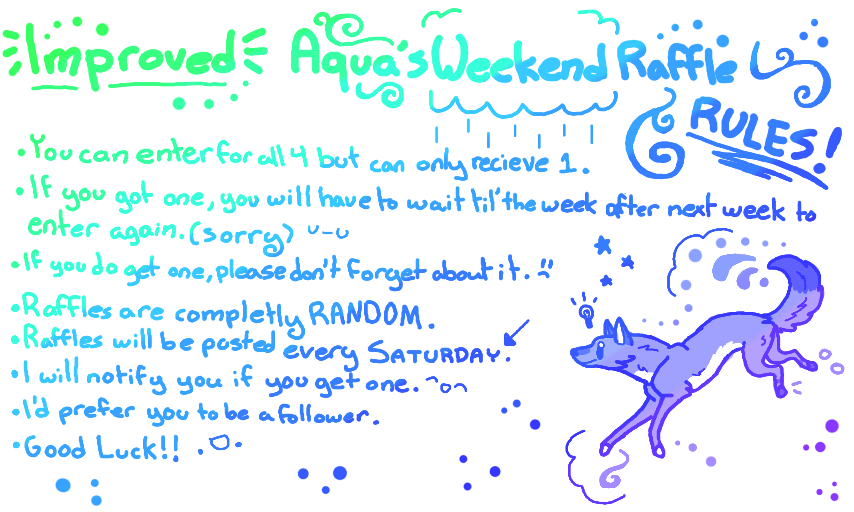 Improved Aqua's Weekend Raffle
RULES!
•You can enter for all 4 but can only recieve 1.
•If you got one, you will have to wait til' the week after next week to
enter again. (sorry) u-u
•If you do get one, please don't forget about it. :(
•Raffles are completly RANDOM.
•Raffles will be posted every SATURDAY.
•I will notify you if you get one. ^o^
•I'd prefer you to be a follower.
•Good Luck!! .▽.